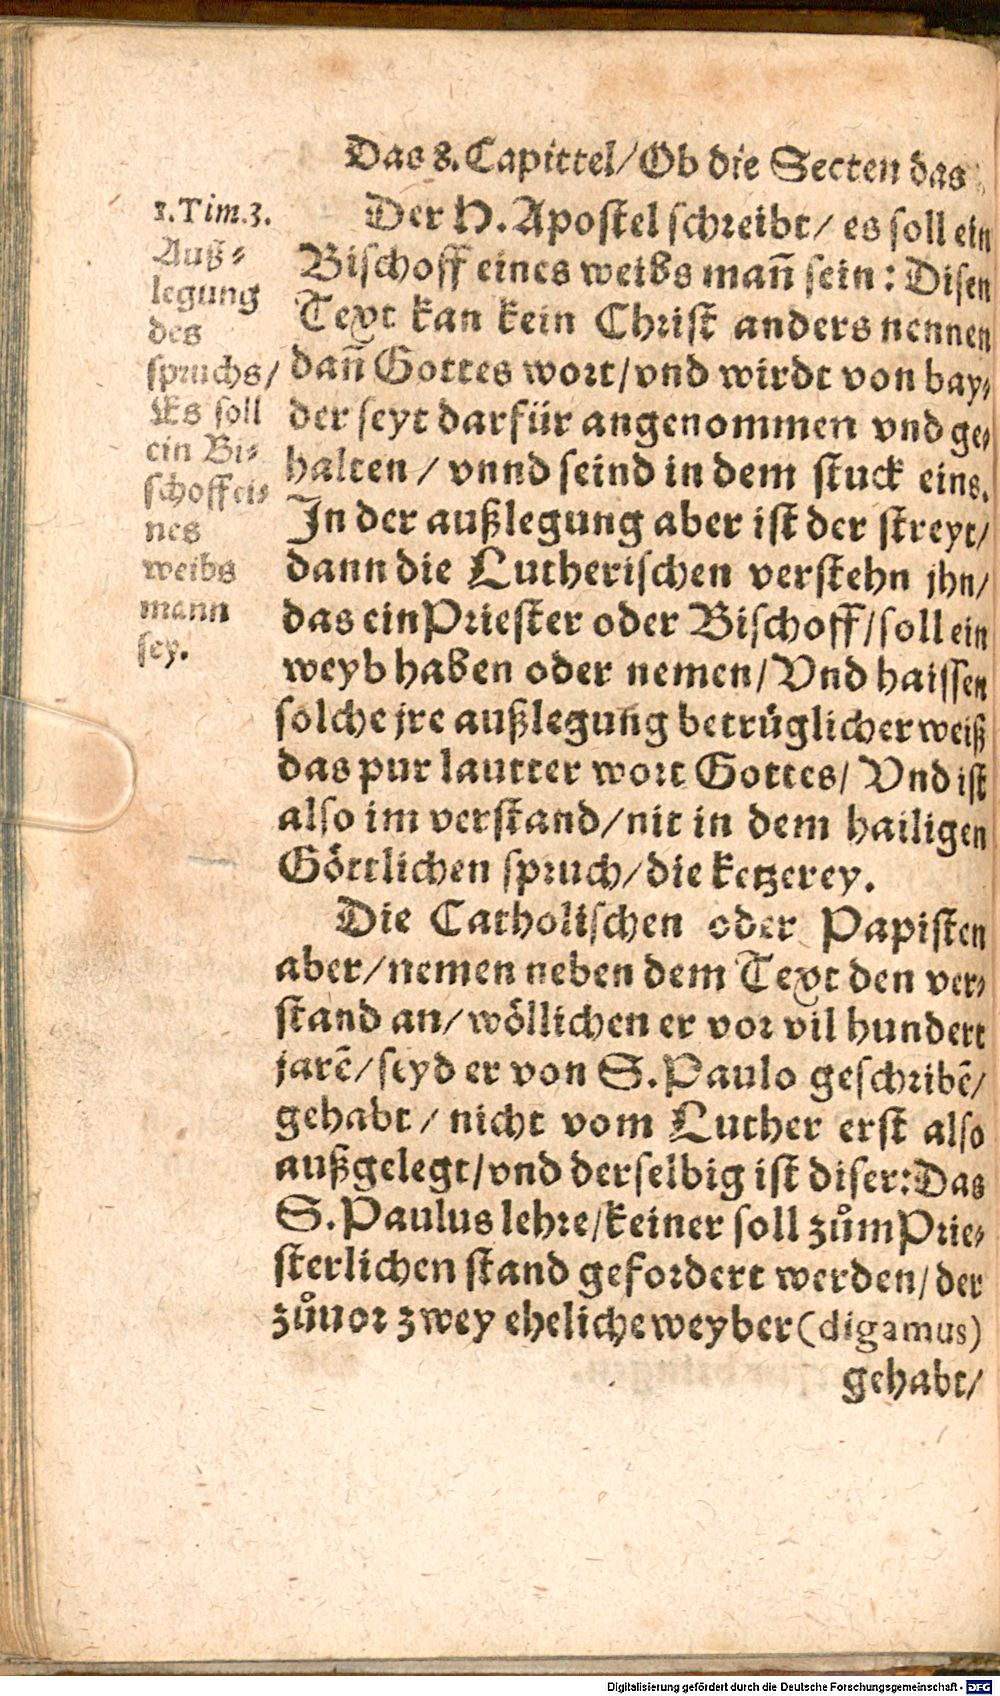 Das 8. Capittel/Ob die Secten das
1.Tim.3.
Auß⸗
legung
des
spruchs/
Es soll
ein Bi⸗
schoff ei⸗
nes
weibs
mann
sey.
Der H. Apostel schreibt/ es soll ein
Bischoff eines weibs mañ sein: Disen
Text kan kein Christ anders nennen
dañ Gottes wort/vnd wirdt von bay⸗
der seyt darfür angenommen vnd ge⸗
halten/ vnnd seind in dem stuck eins.
In der außlegung aber ist der streyt/
dann die Lutherischen verstehn jhn/
das ein Priester oder Bischoff/soll ein
weyb haben oder nemen/Vnd haissen
solche jre außlegung betrüglicher weiß
das pur lautter wort Gottes/ Vnd ist
also im verstand/nit in dem hailigen
Göttlichen spruch/die ketzerey.
Die Catholischen oder Papisten
aber/nemen neben dem Text den ver⸗
stand an/wöllichen er vor vil hundert
jarē/seyd er von S.Paulo geschribē/
gehabt/ nicht vom Luther erst also
außgelegt/vnd derselbig ist diser:Das
S.Paulus lehre/keiner soll zům Prie⸗
sterlichen stand gefordert werden/der
zůuor zwey eheliche weyber (digamus)
gehabt/
Digitalisierung gefördert durch die Deutsche Forschungsgemeinschaft - DFG